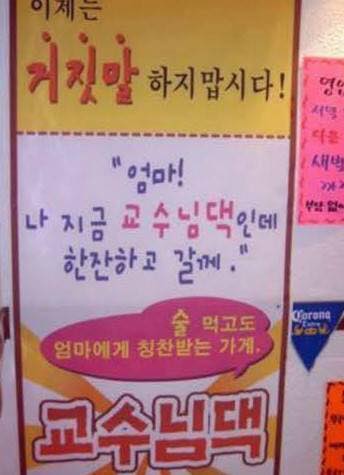 이제는
거짓말 하지맙시다!
"엄마!
나 지금 교수님댁인데
한잔하고 갈께."
술 먹고도
엄마에게 칭찬받는 가게.
교수님댁
Corona
Extra